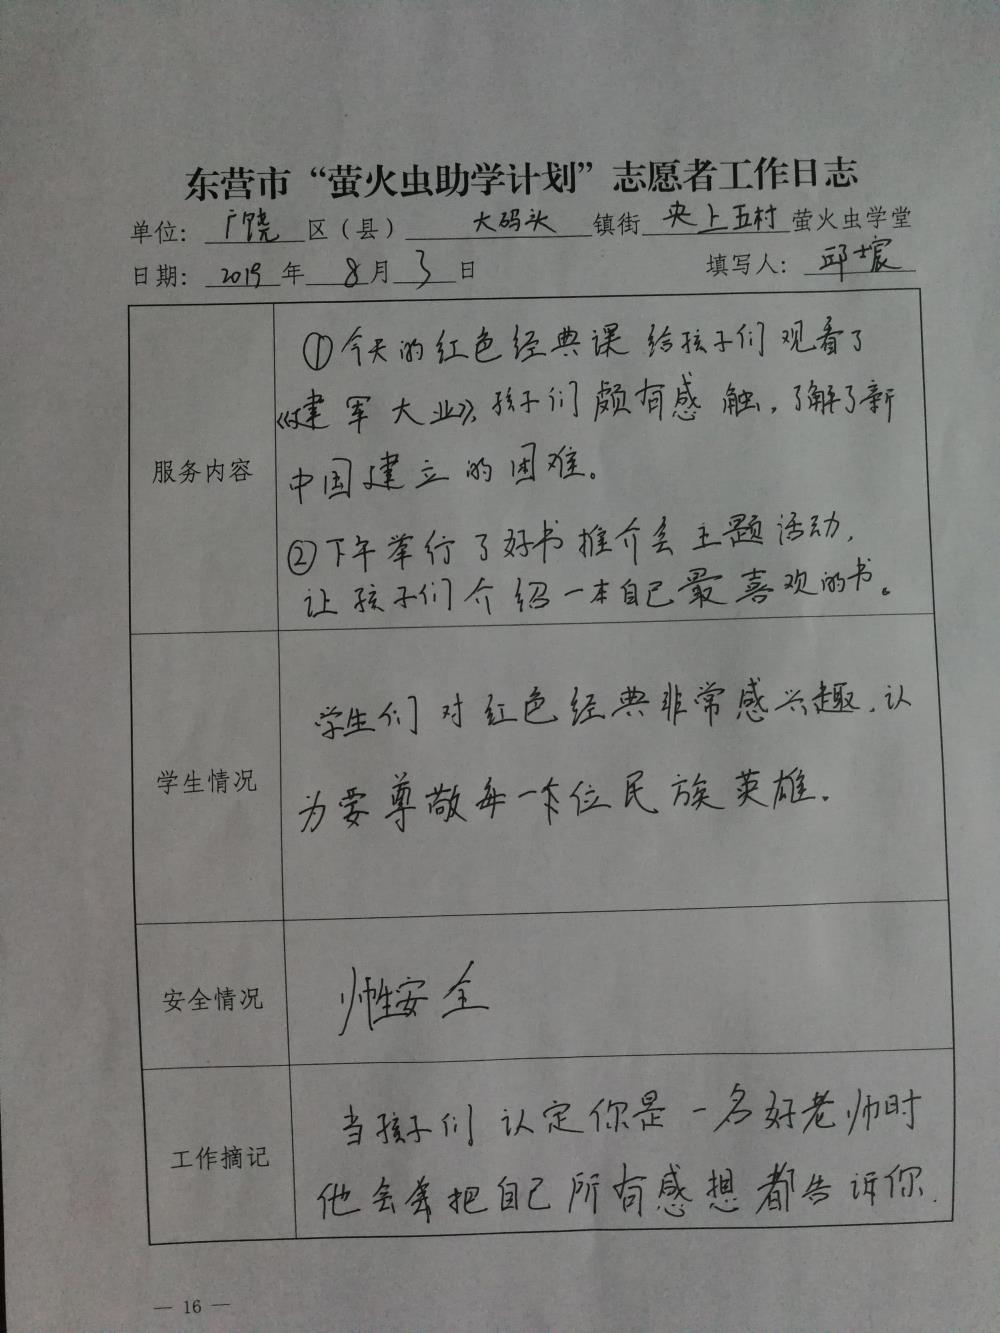 东营市“萤火虫助学计划”志愿者工作日志
单位：广饶区（县）大码头镇街央上五村萤火虫学堂
日期：2019年8月3日 填写人：邱士宸
服务内容
①今天的红色经典课给孩子们观看了
《建军大业》，孩子们颇有感触，了解了新
中国建立的困难。
②下午举行了好书推介会主题活动，
让孩子们介绍一本自己最喜欢的书。
学生情况
学生们对红色经典非常感兴趣，认
为要尊敬每一位民族英雄.
安全情况
师生安全
工作摘记
当孩子们认定你是一名好老师时
他会把自己所有感想都告诉你.
— 16 —